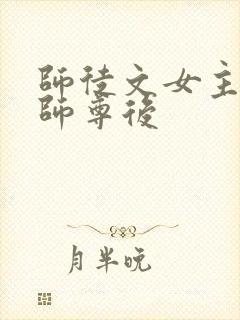 師徒文女主
師尊後
月半晚